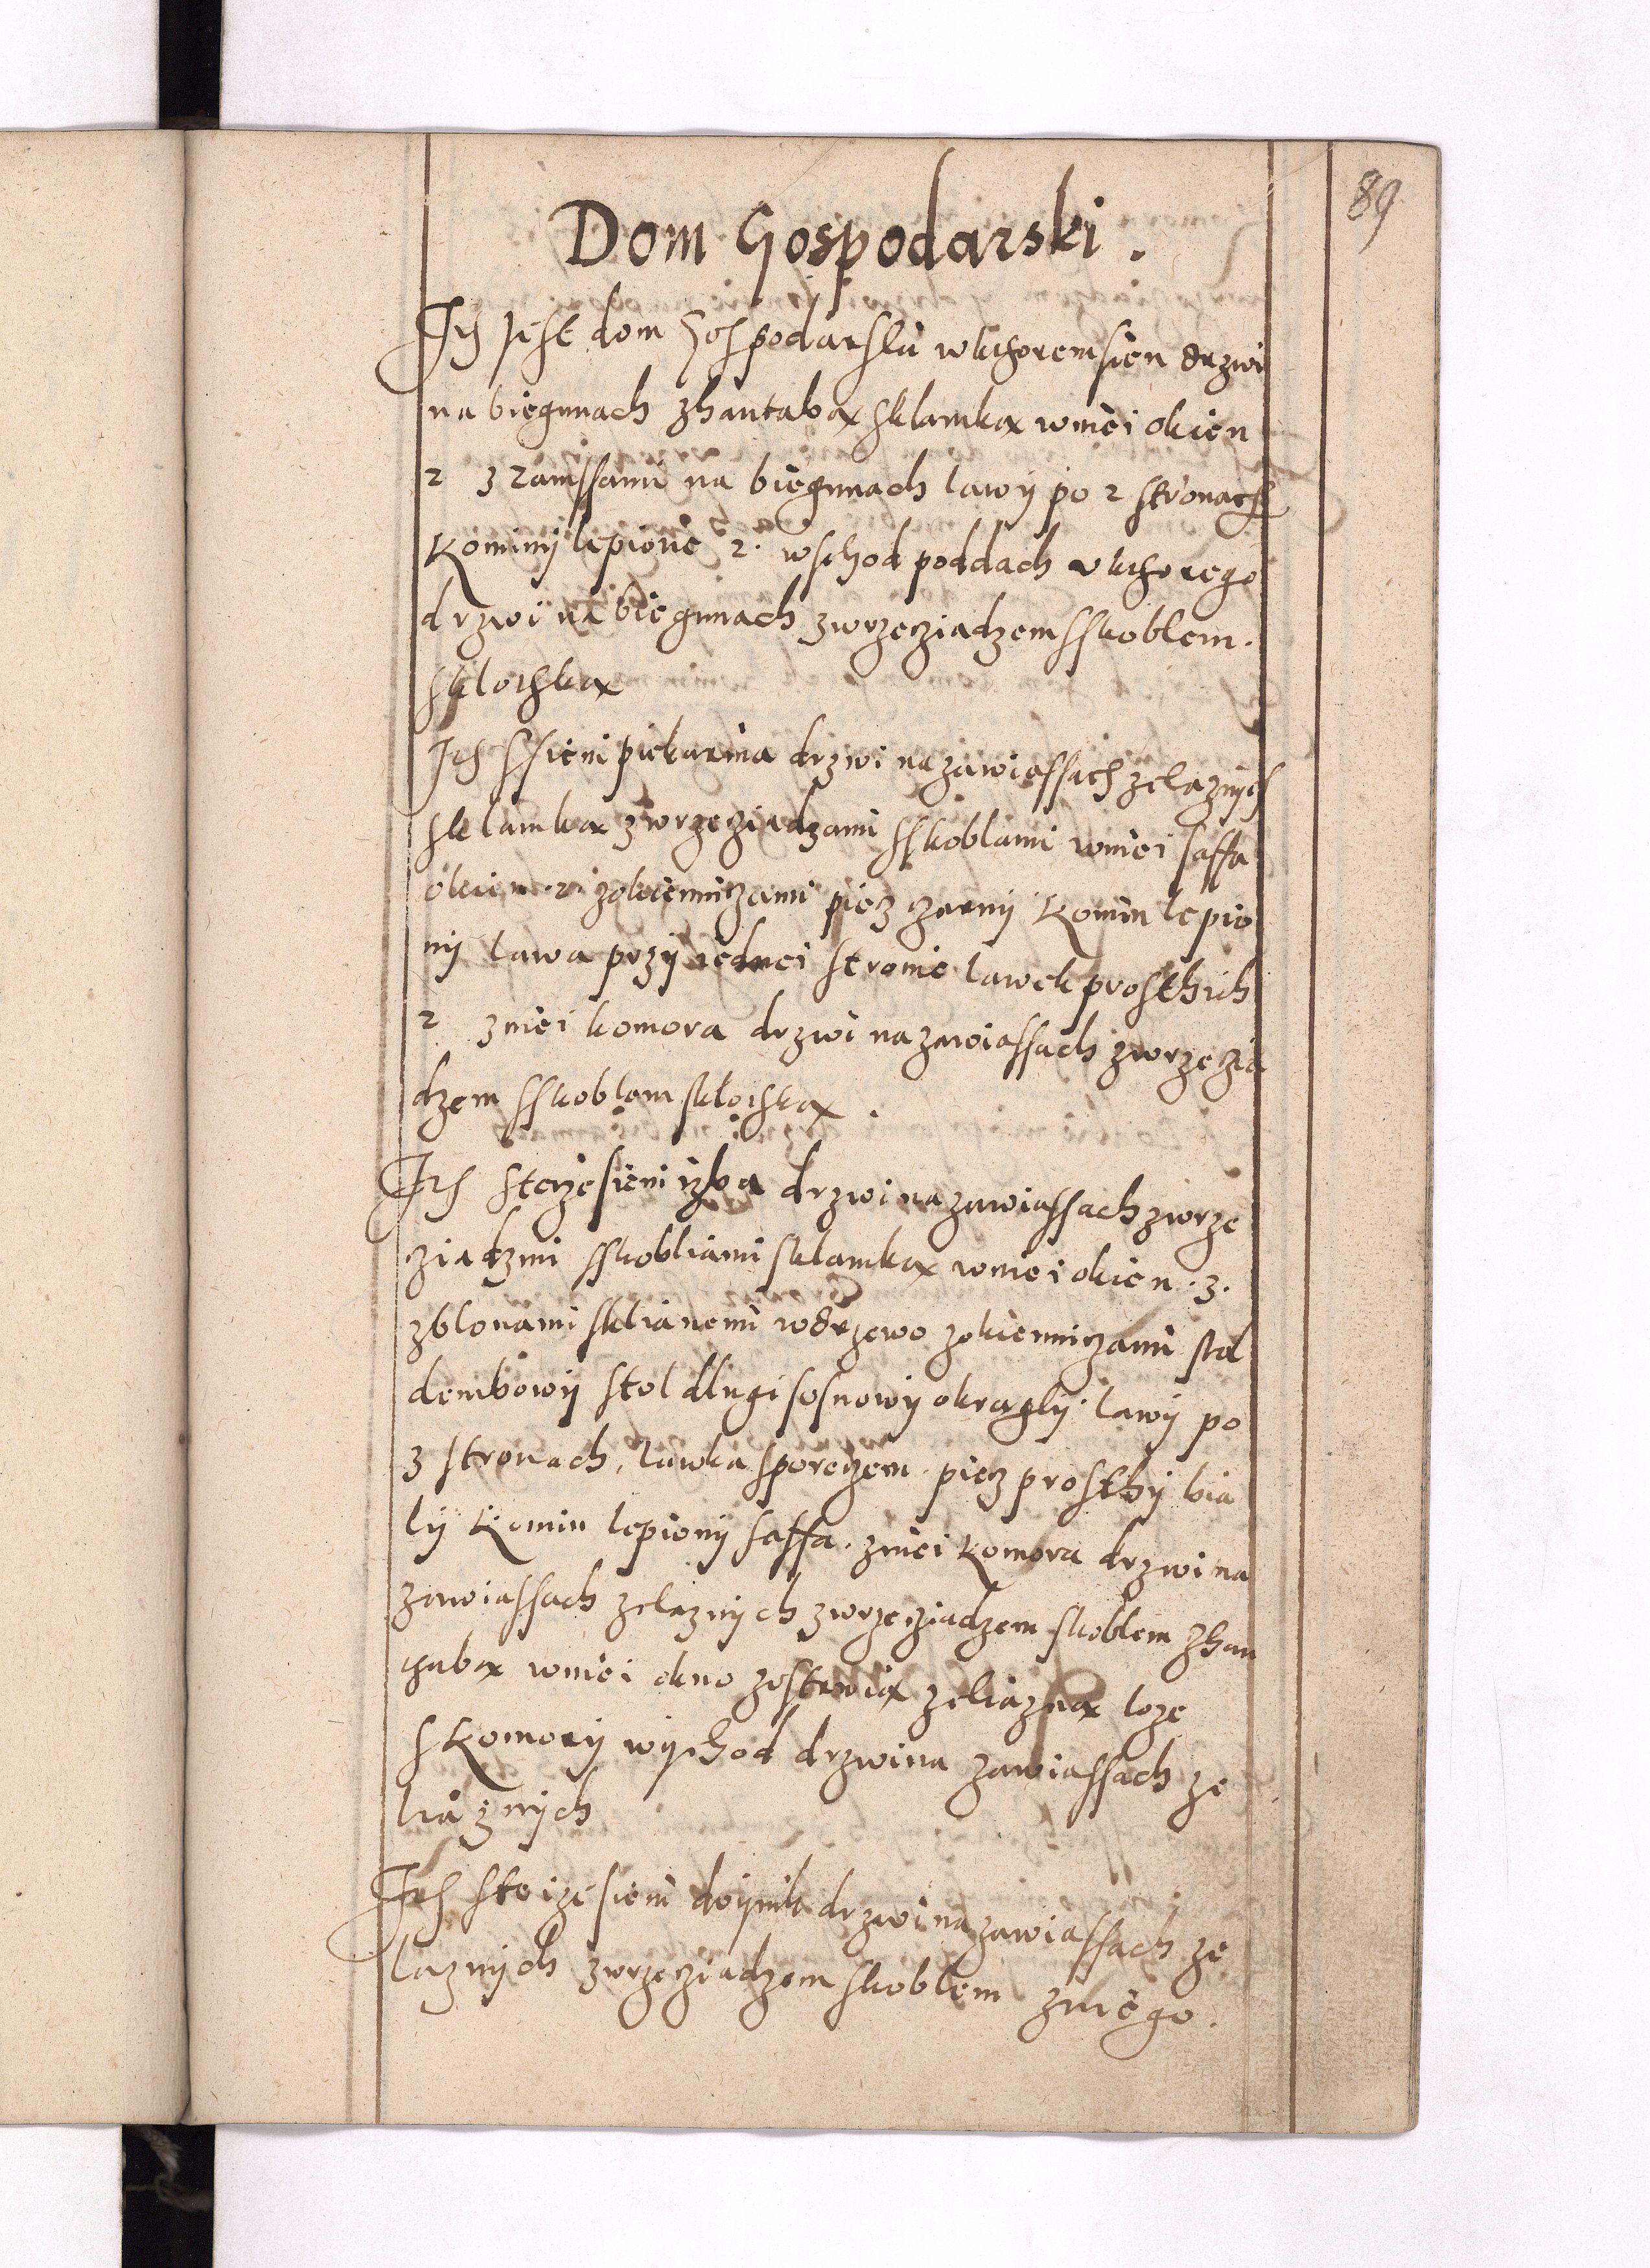 89
Dom Gospodarski.
Ith Jest dom Gospodarski wkthorem sien drzwi
na biegunach zhantabą sklamką wniei okien
2 z ramssami na biegunach lawy po 2 stronach
Kominy lepione 2. wschod poddach v kthorego
drzwi na biegunach zwrzecziadzem sskoblem.
sklothką
Ith ssieni piekarnia drzwi na zawiassach zelaznych
sklamką zwrzecziadzami sskoblami wniei saffa
okien .2. zokienniczami piecz czarny Komin lepio
ny lawa przy iednei stronie lawek prosthich
2 zniei komora drzwi na zawiassach zwrzeczia
dzem sskoblem sklothką.
Ith steyze sieni izba drzwi na zawiassach zwrze
cziadzmi sskobliami sklamką wniei okien .3.
zblonami sklianemi wdrzewo zokienniczami stol
dembowy stol dlugi sosnowy okragly. lawy po
3 stronach, lawka sporeczem. piecz prosthy bia
ly Komin lepiony saffa. zniei Komora drzwi na
zawiassach zelaznych zwrzecziadzem skoblem zhan
thabą wniei okno zostawią zeliazną loze
s Komory wychod drzwi na zawiassach ze
liaznych
Ith steize sieni doynik drzwi na zawiassach ze
laznych zwrzecziadzem skoblem zniego.